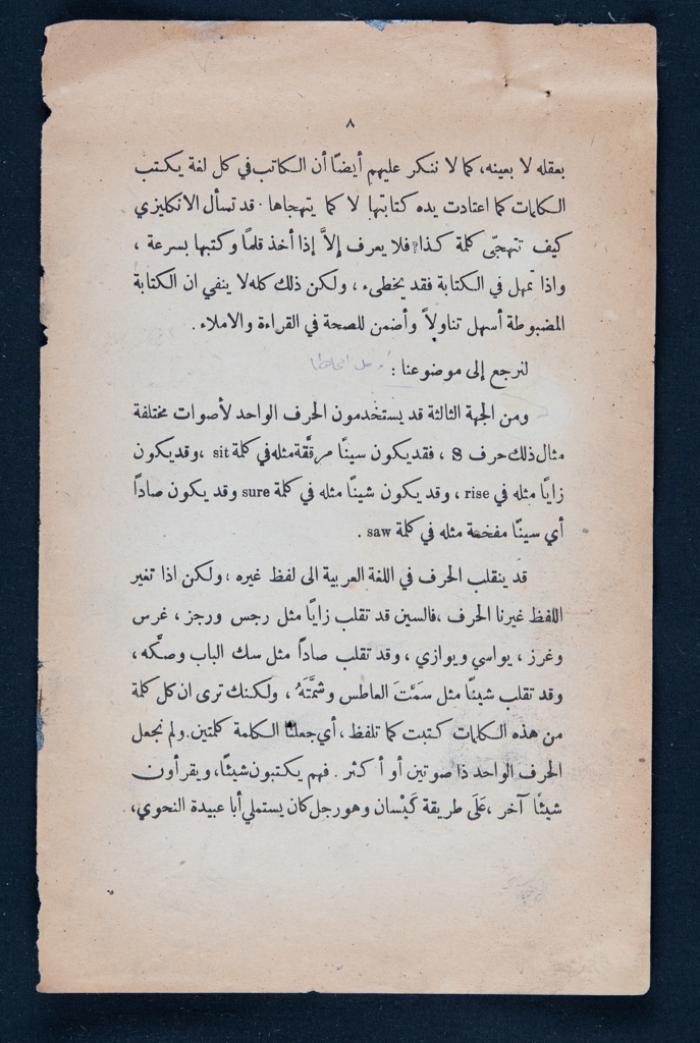 ٨
بعقله لا بعينه، كما لا ننكر عليهم أيضًا أن الكاتب في كل لغة يكتب
الكلمات كما اعتادت يده كتابتها لا كما يتهجاها · قد تسأل الانكليزي
كيف تتهجّى كلمة كذا؟ فلا يعرف إلاَّ إذا أخذ قلمًا وكتبها بسرعة ،
واذا تمهل في الكتابة فقد يخطىء ، ولكن ذلك كله لا ينفي ان الكتابة
المضبوطة أسهل تناولاً وأضمن للصحة في القراءة والاملاء .
لنرجع إلى موضوعنا :
ومن الجهة الثالثة قد يستخدمون الحرف الواحد لأصوات مختلفة
مثال ذلك حرف S ، فقد يكون سينًا مرقَّقة مثله في كلمة sit ، وقد يكون
زايًا مثله في rise ، وقد يكون شينًا مثله في كلمة sure وقد يكون صادًا
أي سينًا مفخمة مثله في كلمة saw .
قد ينقلب الحرف في اللغة العربية الى لفظ غيره ، ولكن اذا تغير
اللفظ غيرنا الحرف ، فالسين قد تقلب زايًا مثل رجس ورجز ، غرس
وغرز ، يواسي ويوازي ، وقد تقلب صادًا مثل سك الباب وصكَّه ،
وقد تقلب شينًا مثل سَمَّتَ العاطس وشمَّتَهُ ، ولكنك ترى ان كل كلمة
من هذه الكلمات كتبت كما تلفظ ، أي جعلنا الكلمة كلمتين. ولم نجعل
الحرف الواحد ذا صوتين أو أكثر . فهم يكتبون شيئًا، ويقرأون
شيئًا آخر ، عَلَى طريقة كَيْسان وهو رجل كان يستملي أبا عبيدة النحوي،